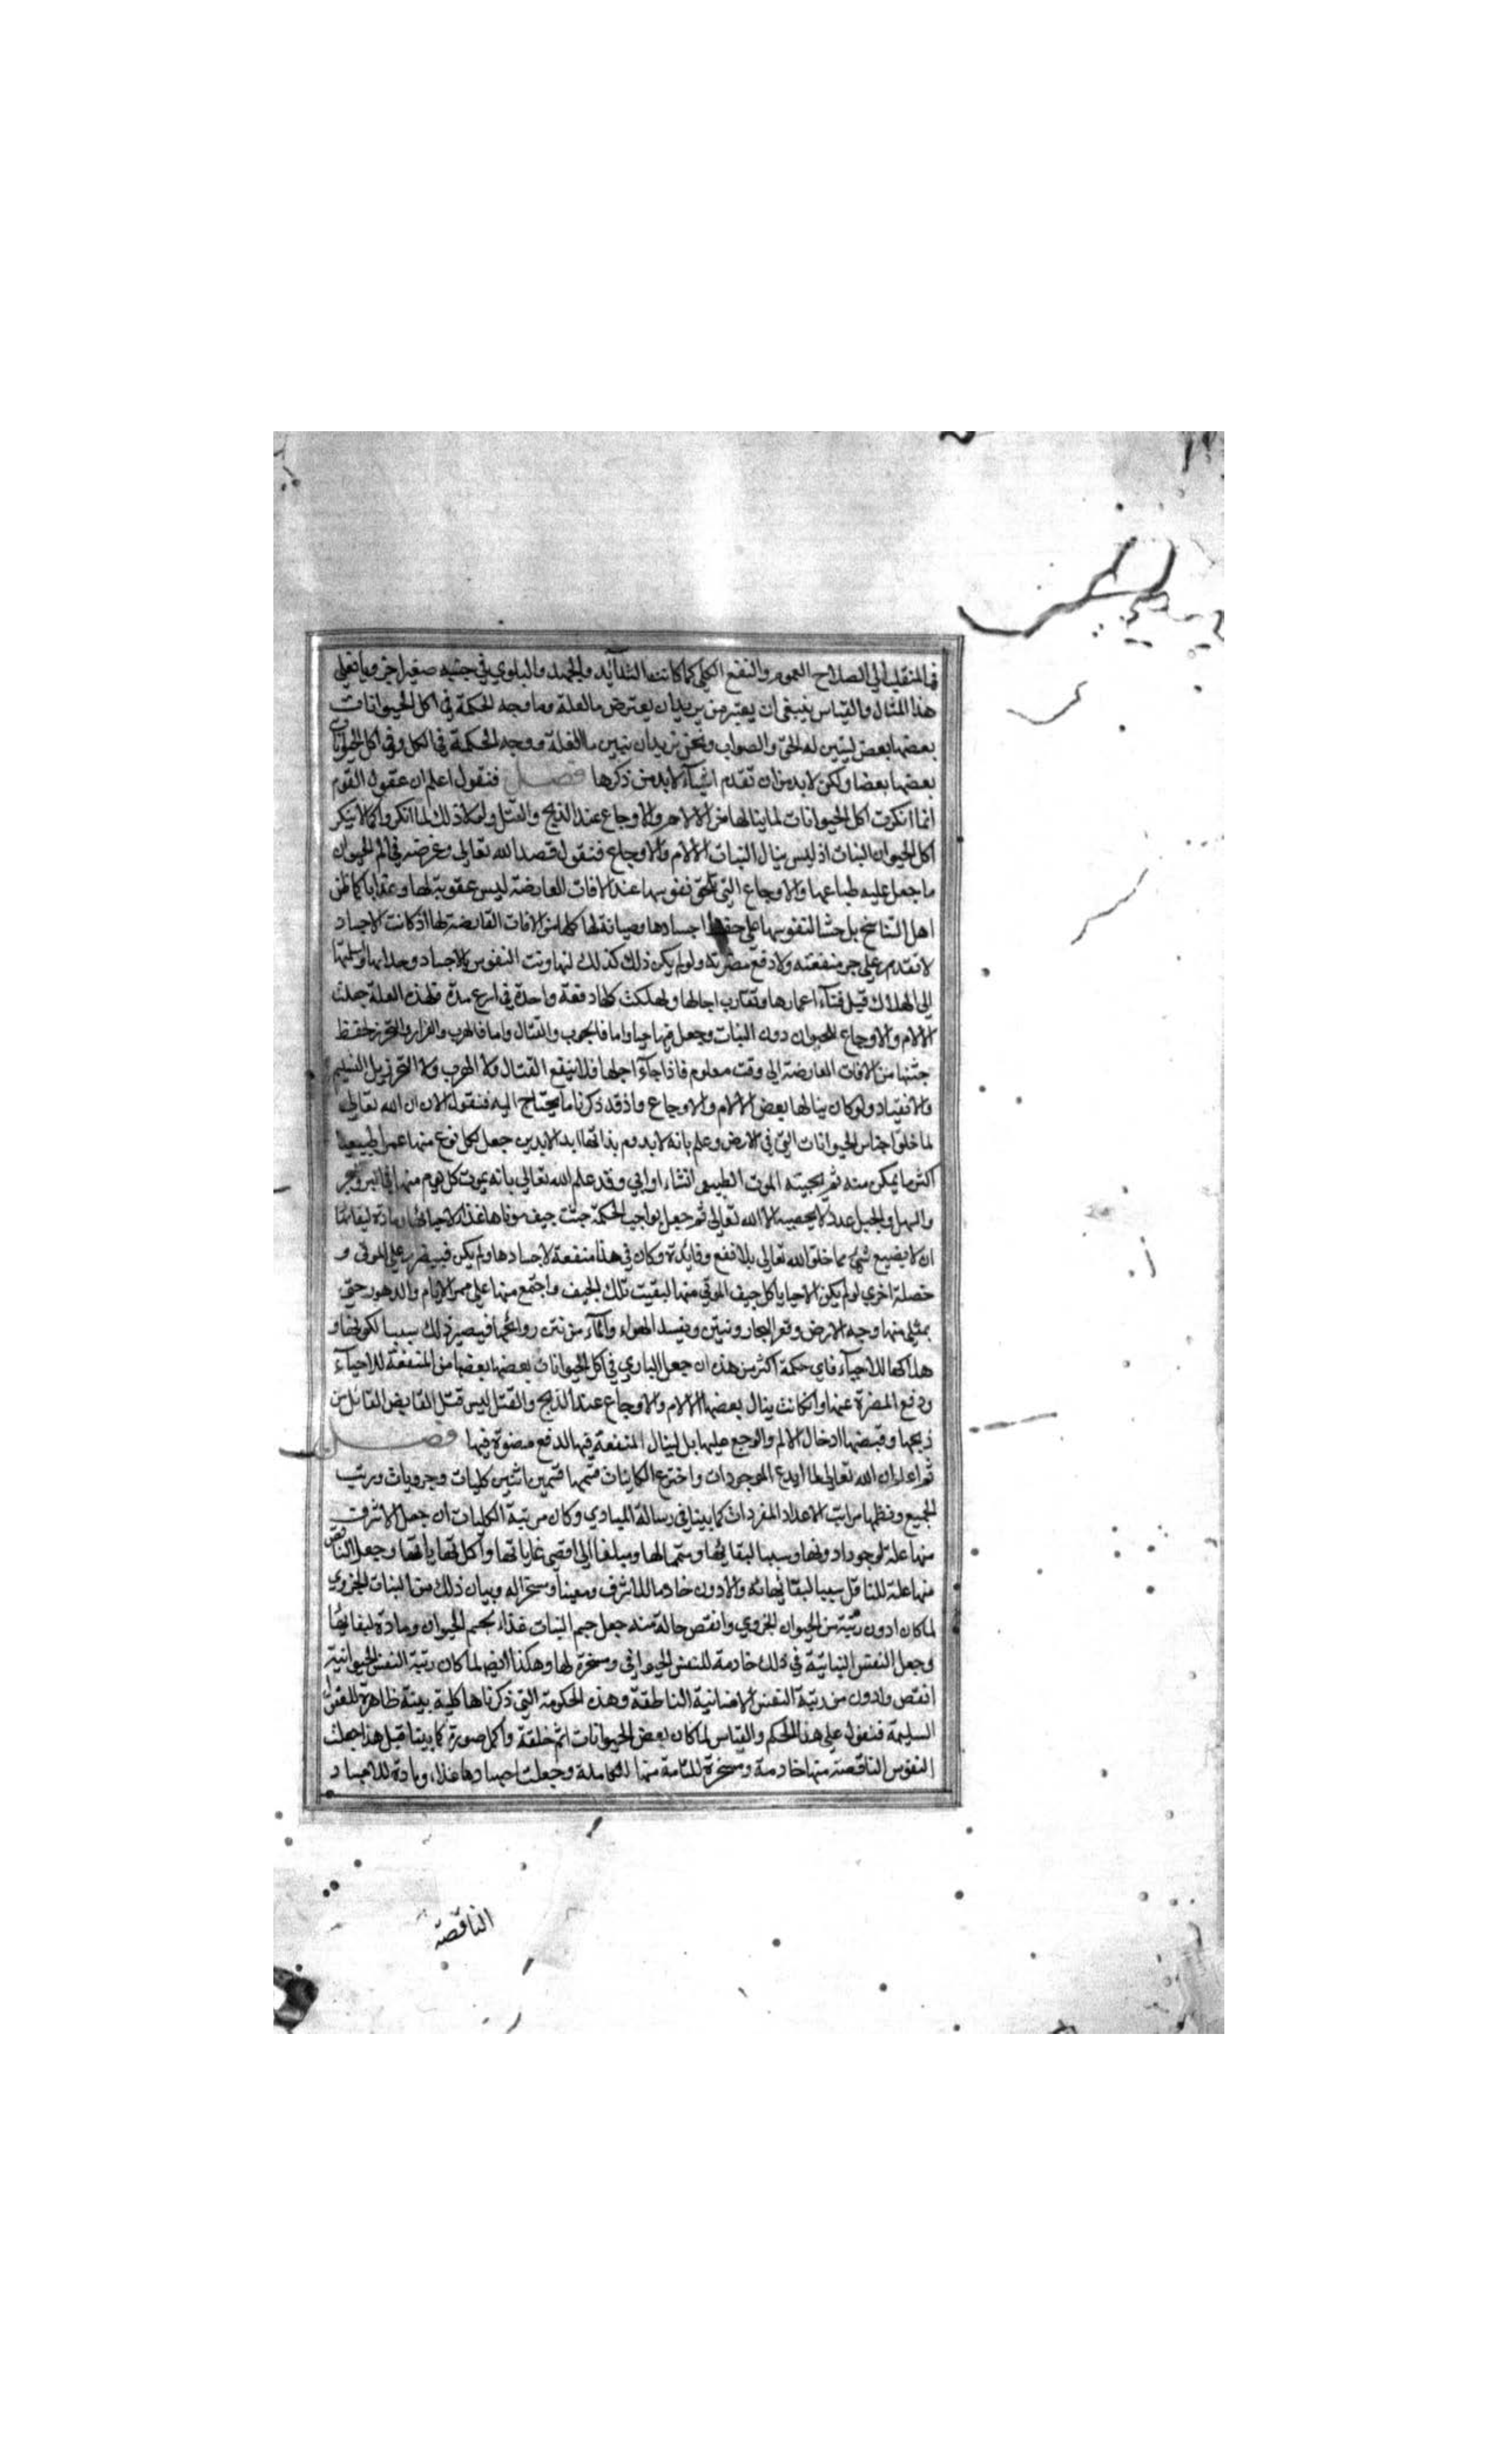 في المنقلب الى الصلاح العموم والنفع الكلي كما كانت الشدائد والجهد والبلوي في جنبه صغيرا جزويا فعلى
هذا المثال والقياس ينبغى ان يعتبر من يريد ان يعترض ما العلة وما وجه الحكمة في اكل الحيوانات
بعضها بعض ليتبين له الحق والصواب ونحن نريد ان نبين ما العلة ووجه الحكمة في الكل وفى اكل الحيوانات
بعضها بعضا ولكن لا بد من ان تقدم اشياء لا بد من ذكرها فصل فنقول اعلم ان عقول القوم
انما انكرت اكل الحيوانات لما ينالها من الالام والاوجاع عند الذبح والقتل ولولا ذلك لما انكروا كما لا ينكر
اكل الحيوان النبات اذ ليس ينال النبات الالام والاوجاع فنقول قصد الله تعالى وغرضه في الم الحيوان
ما جعل عليه طباعها والاوجاع التي تلحق نفوسها عند الافات العارضة ليس عقوبة لها وعذابا كما ظن
اهل التناسخ بل حثا لنفوسها على حفظ اجسادها وصيانة لها كلها من الافات العارضة لها اذ كانت الاجساد
لا تقدم على جر منفعته ولا دفع مضرته ولو لم يكن ذلك كذلك لتهاونت النفوس بالاجساد وخذلتها واسلمتها
الى الهلاك قبل فناء اعمارها وتقارب اجالها ولهلكت كلها دفعة واحدة في اسرع مدة فلهذه العلة جعلت
الالام والاوجاع للحيوان دون النبات وجعل فيها حيا واما فالحرب والقتال واما فالهرب والفرار والتحرز لحفظ
جثتها من الافات العارضة الى وقت معلوم فاذا جاء اجلها فلا ينفع القتال ولا الهرب ولا التحرز بل التسليم
والانقياد ولو كان ينالها بعض الالام والاوجاع واذ قد ذكرنا ما يحتاج اليه فنقول الان ان الله تعالى
لما خلق اجناس الحيوانات التي في الارض وعلم بانه لا يدوم بذاتها ابد الابدين جعل لكل نوع منها عمرا طبيعيا
اكثر ما يمكن منه ثم يجيئه الموت الطبيعي انشاء او ابي وقد علم الله تعالى بانه يموت كل يوم منها في البر والبحر
والسهل والجبل عدد لا يحصيه الا الله تعالى ثم جعل بواجب الحكمة جثث جيف موتاها غذاء لاحيائها ومادة لبقائها
ان لا يضيع شئ مما خلق الله تعالى بلا نفع وفايدة وكان في هذا منفعة لاجسادها ولم يكن فيه ضرر على الموتى و
خصلة اخري لو لم يكن الاحيا ياكل جيف الموتي منها لبقيت تلك الجيف واجتمع منها على ممر الايام والدهور حتى
يمتلى منها وجه الارض وقعر البحار وتنتن ويفسد الهواء والماء من نتن روائحها فيصير ذلك سببا لكونها و
هلاكها للاحياء فاي حكمة اكثر من هذه ان جعل الباري في اكل الحيوانات بعضها بعضا من المنفعة للاحياء
ودفع المضرة عنها وان كانت ينال بعضها الالام والاوجاع عند الذبح والقتل ليس قتل القابض القاتل من
ذبحها وقبضها ادخال الالم والوجع عليها بل لينال المنفعة فيها لدفع مضرة فيها فصل
ثم اعلم ان الله تعالى لما ابدع الموجودات واخترع الكائنات قسمها قسمين اثنين كليات وجزويات ورتب
الجميع ونظمها مراتب الاعداد المفردات كما بينا في رسالة المبادي وكان مرتبة الكليات ان جعل الاشرف
منها علة لوجود ادونها وسببا لبقائها ومتمما لها ومبلغا الى اقصى غاياتها واكمل نهاياتها وجعل الناقص
منها علة للناقل سببا لبقائها والادون خادما للاشرف ومعينا ومسخرا له وبيان ذلك من النبات الجزوي
لما كان ادون رتبة من الحيوان الجزوي وانقص حالة منه جعل جسم النبات غذاء لجسم الحيوان ومادة لبقائها
وجعل النفس النباتية في ذلك خادمة للنفس الحيوانى ومسخرة لها وهكذا ايضا لما كان رتبة النفس الحيوانية
انقص وادون من رتبة النفس الانسانية الناطقة وهذه الحكومة التي ذكرناها كلية بينة ظاهرة للعقول
السليمة فنقول على هذا الحكم والقياس لما كان بعض الحيوانات اتم خلقة واكمل صورة كما بينا قبل هذا جعلت
النفوس الناقصة منها خادمة ومسخرة للتامة منها الكاملة وجعلت اجسادها غذاء ومادة للاجساد
الناقصة